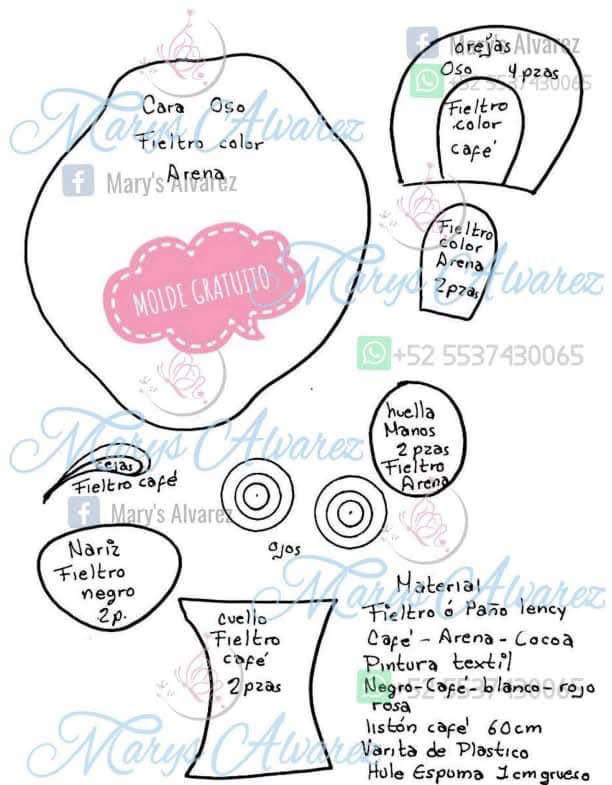 Cara Oso
Fieltro color
Arena
Marys Alvarez
Mary's Alvarez
MOLDE GRATUITO
Mary's Alvarez
orejas
Oso 4 pzas
+52 5537430065
Fieltro
color
café
Fieltro
color
Arena
2 pzas
Marys Alvarez
+52 5537430065
huella
Manos
2 pzas
Fieltro
Arena
Marys Alvarez
cejas
Fieltro café
Mary's Alvarez
ojos
Nariz
Fieltro
negro
2 p.
cuello
Fieltro
café
2 pzas
Marys Alvarez
Material
Fieltro ó Paño lency
Café - Arena - Cocoa
Pintura textil
Negro - Café - blanco - rojo
rosa
+52 5537430065
listón café 60 cm
Varita de Plastico
Hule Espuma 1 cm grueso
Marys Alvarez